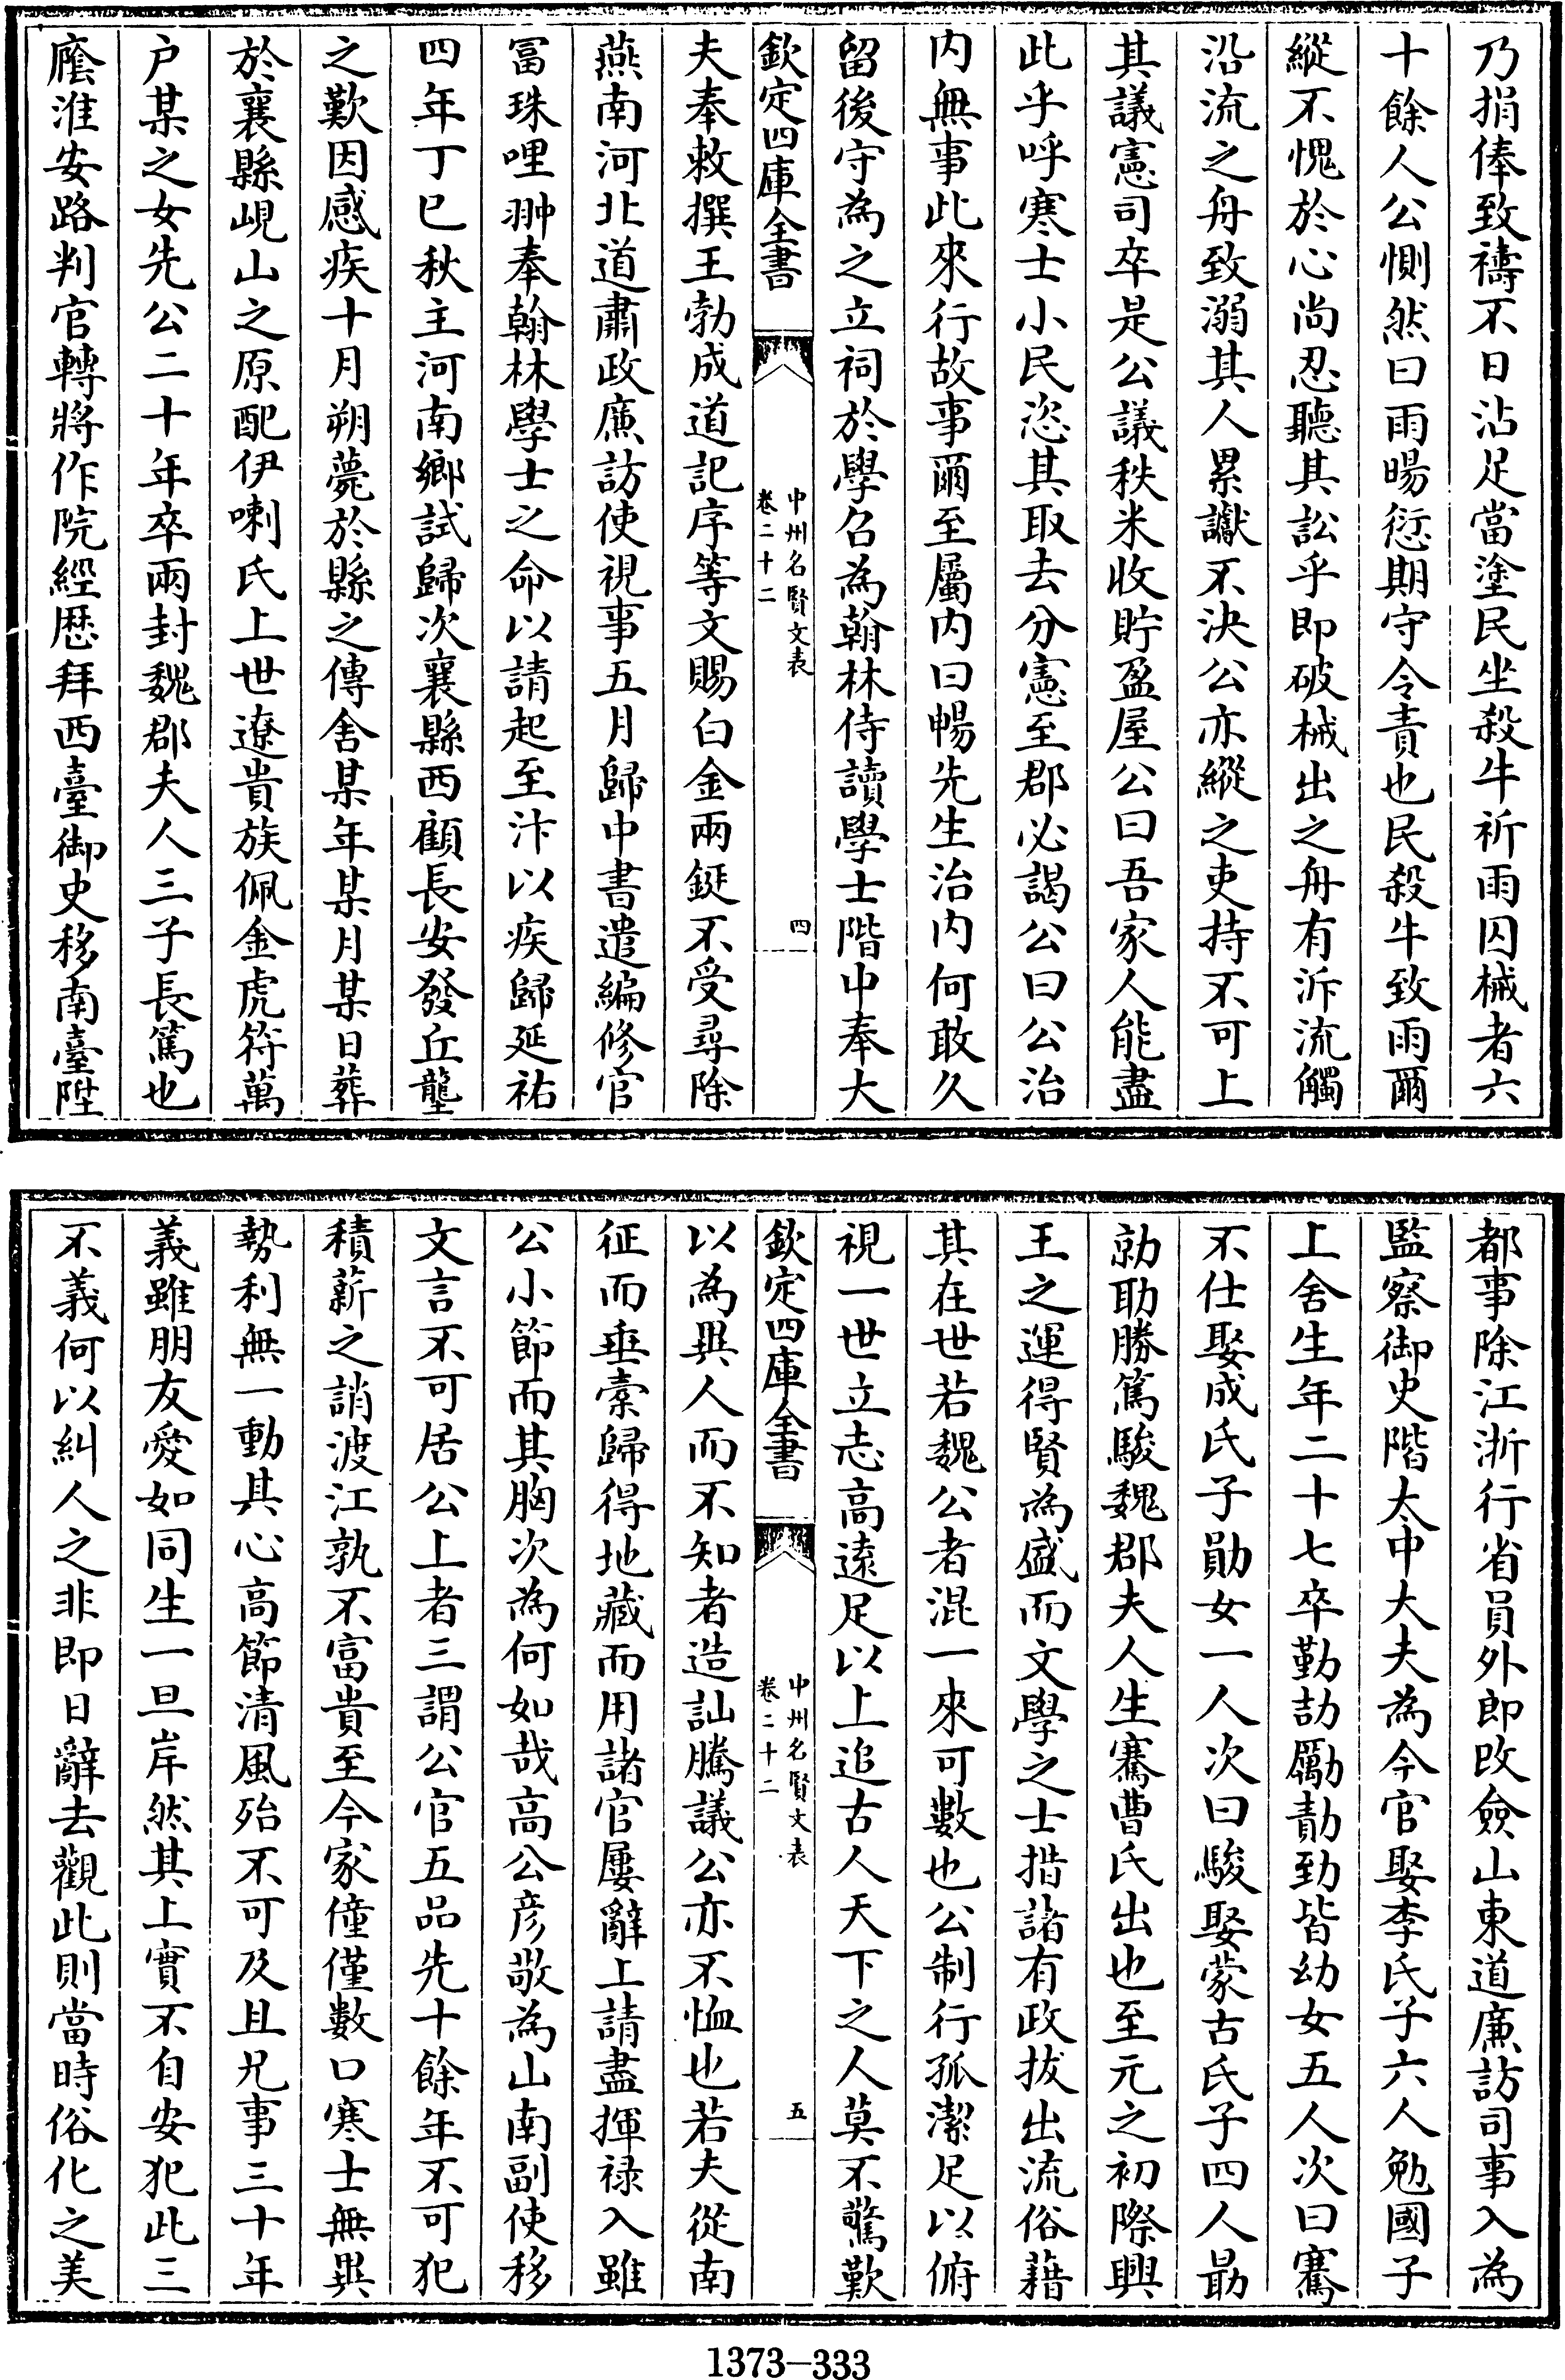 乃捐俸致禱不日沾足當塗民坐殺牛祈雨囚械者六
十餘人公惻然曰雨暘愆期守令責也民殺牛致雨爾
縱不愧於心尚忍聽其訟乎即破械出之舟有泝流觸
沿流之舟致溺其人累讞不決公亦縱之吏持不可上
其議憲司卒是公議秩米收貯盈屋公曰吾家人能盡
此乎呼寒士小民恣其取去分憲至郡必謁公曰公治
内無事此來行故事爾至屬内曰暢先生治内何敢久
留後守為之立祠於學召為翰林侍讀學士階中奉大
欽定四庫全書
中州名賢文表
卷二十二
四
夫奉敕撰王勃成道記序等文賜白金兩鋌不受尋除
燕南河北道肅政廉訪使視事五月歸中書遣編修官
富珠哩翀奉翰林學士之命以請起至汴以疾歸延祐
四年丁巳秋主河南鄉試歸次襄縣西顧長安發丘壟
之歎因感疾十月朔薨於縣之傳舍某年某月某日葬
於襄縣峴山之原配伊喇氏上世遼貴族佩金虎符萬
户某之女先公二十年卒兩封魏郡夫人三子長篤也
廕淮安路判官轉將作院經歷拜西臺御史移南臺陞
都事除江浙行省員外郎改僉山東道廉訪司事入為
監察御史階太中大夫為今官娶李氏子六人勉國子
上舍生年二十七卒勤劼勵勣勁皆幼女五人次曰騫
不仕娶成氏子勛女一人次曰駿娶蒙古氏子四人勗
勍助勝篤駿魏郡夫人生騫曹氏出也至元之初際興
王之運得賢為盛而文學之士措諸有政拔出流俗藉
其在世若魏公者混一來可數也公制行孤潔足以俯
視一世立志高遠足以上追古人天下之人莫不驚歎
欽定四庫全書
中州名賢文表
卷二十二
五
以為異人而不知者造訕騰議公亦不恤也若夫從南
征而垂橐歸得地藏而用諸官屢辭上請盡揮祿入雖
公小節而其胸次為何如哉高公彥敬為山南副使移
文言不可居公上者三謂公官五品先十餘年不可犯
積薪之誚渡江孰不富貴至今家僮僅數口寒士無異
勢利無一動其心高節清風殆不可及且兄事三十年
義雖朋友愛如同生一旦岸然其上實不自安犯此三
不義何以糾人之非即日辭去觀此則當時俗化之美
1373-333